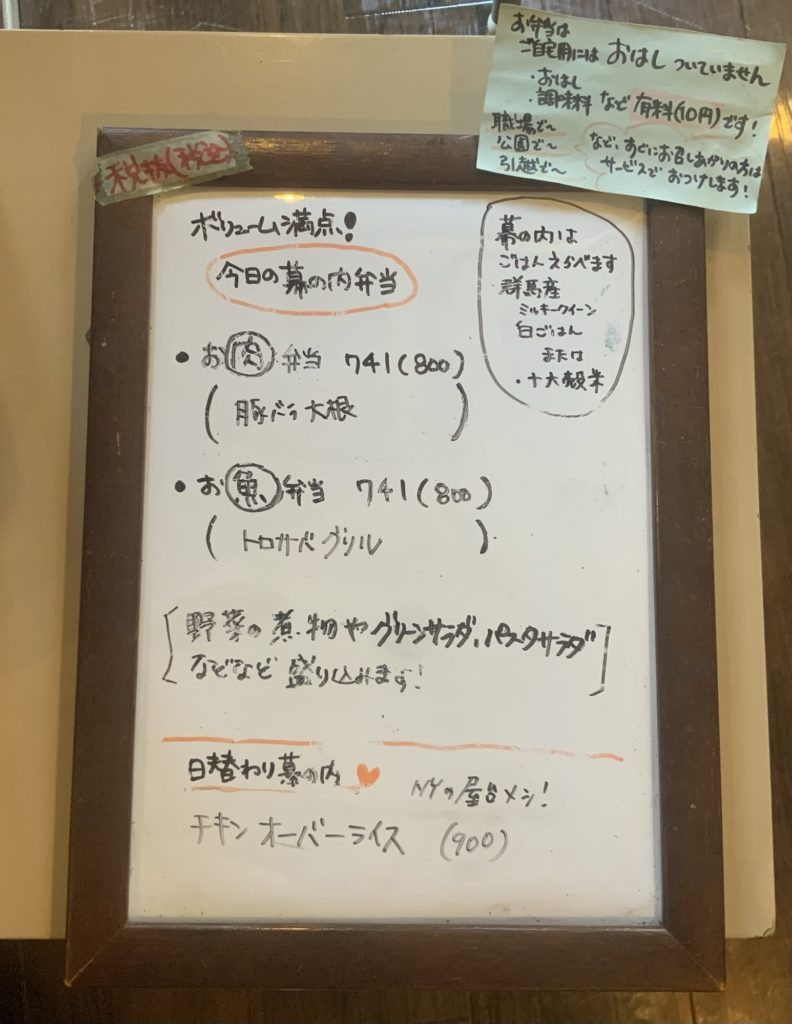 お弁当は
ご自宅用には おはし ついていません
・おはし
・調味料 など 有料(10円)です!
職場で〜
公園で〜
引越で〜
など、すぐにお召しあがりの方は
サービスで おつけします!
税抜(税込)
ボリューム満点!
今日の幕の内弁当
幕の内は
ごはんえらべます
群馬産
ミルキークイーン
白ごはん
または
・十六穀米
● お肉弁当 741(800)
(豚バラ大根)
● お魚弁当 741(800)
(トロサバグリル)
[野菜の煮物やグリーンサラダ、パスタサラダ
などなど 盛り込みます!]
日替わり幕の内 ♥
NYの屋台メシ!
チキンオーバーライス (900)